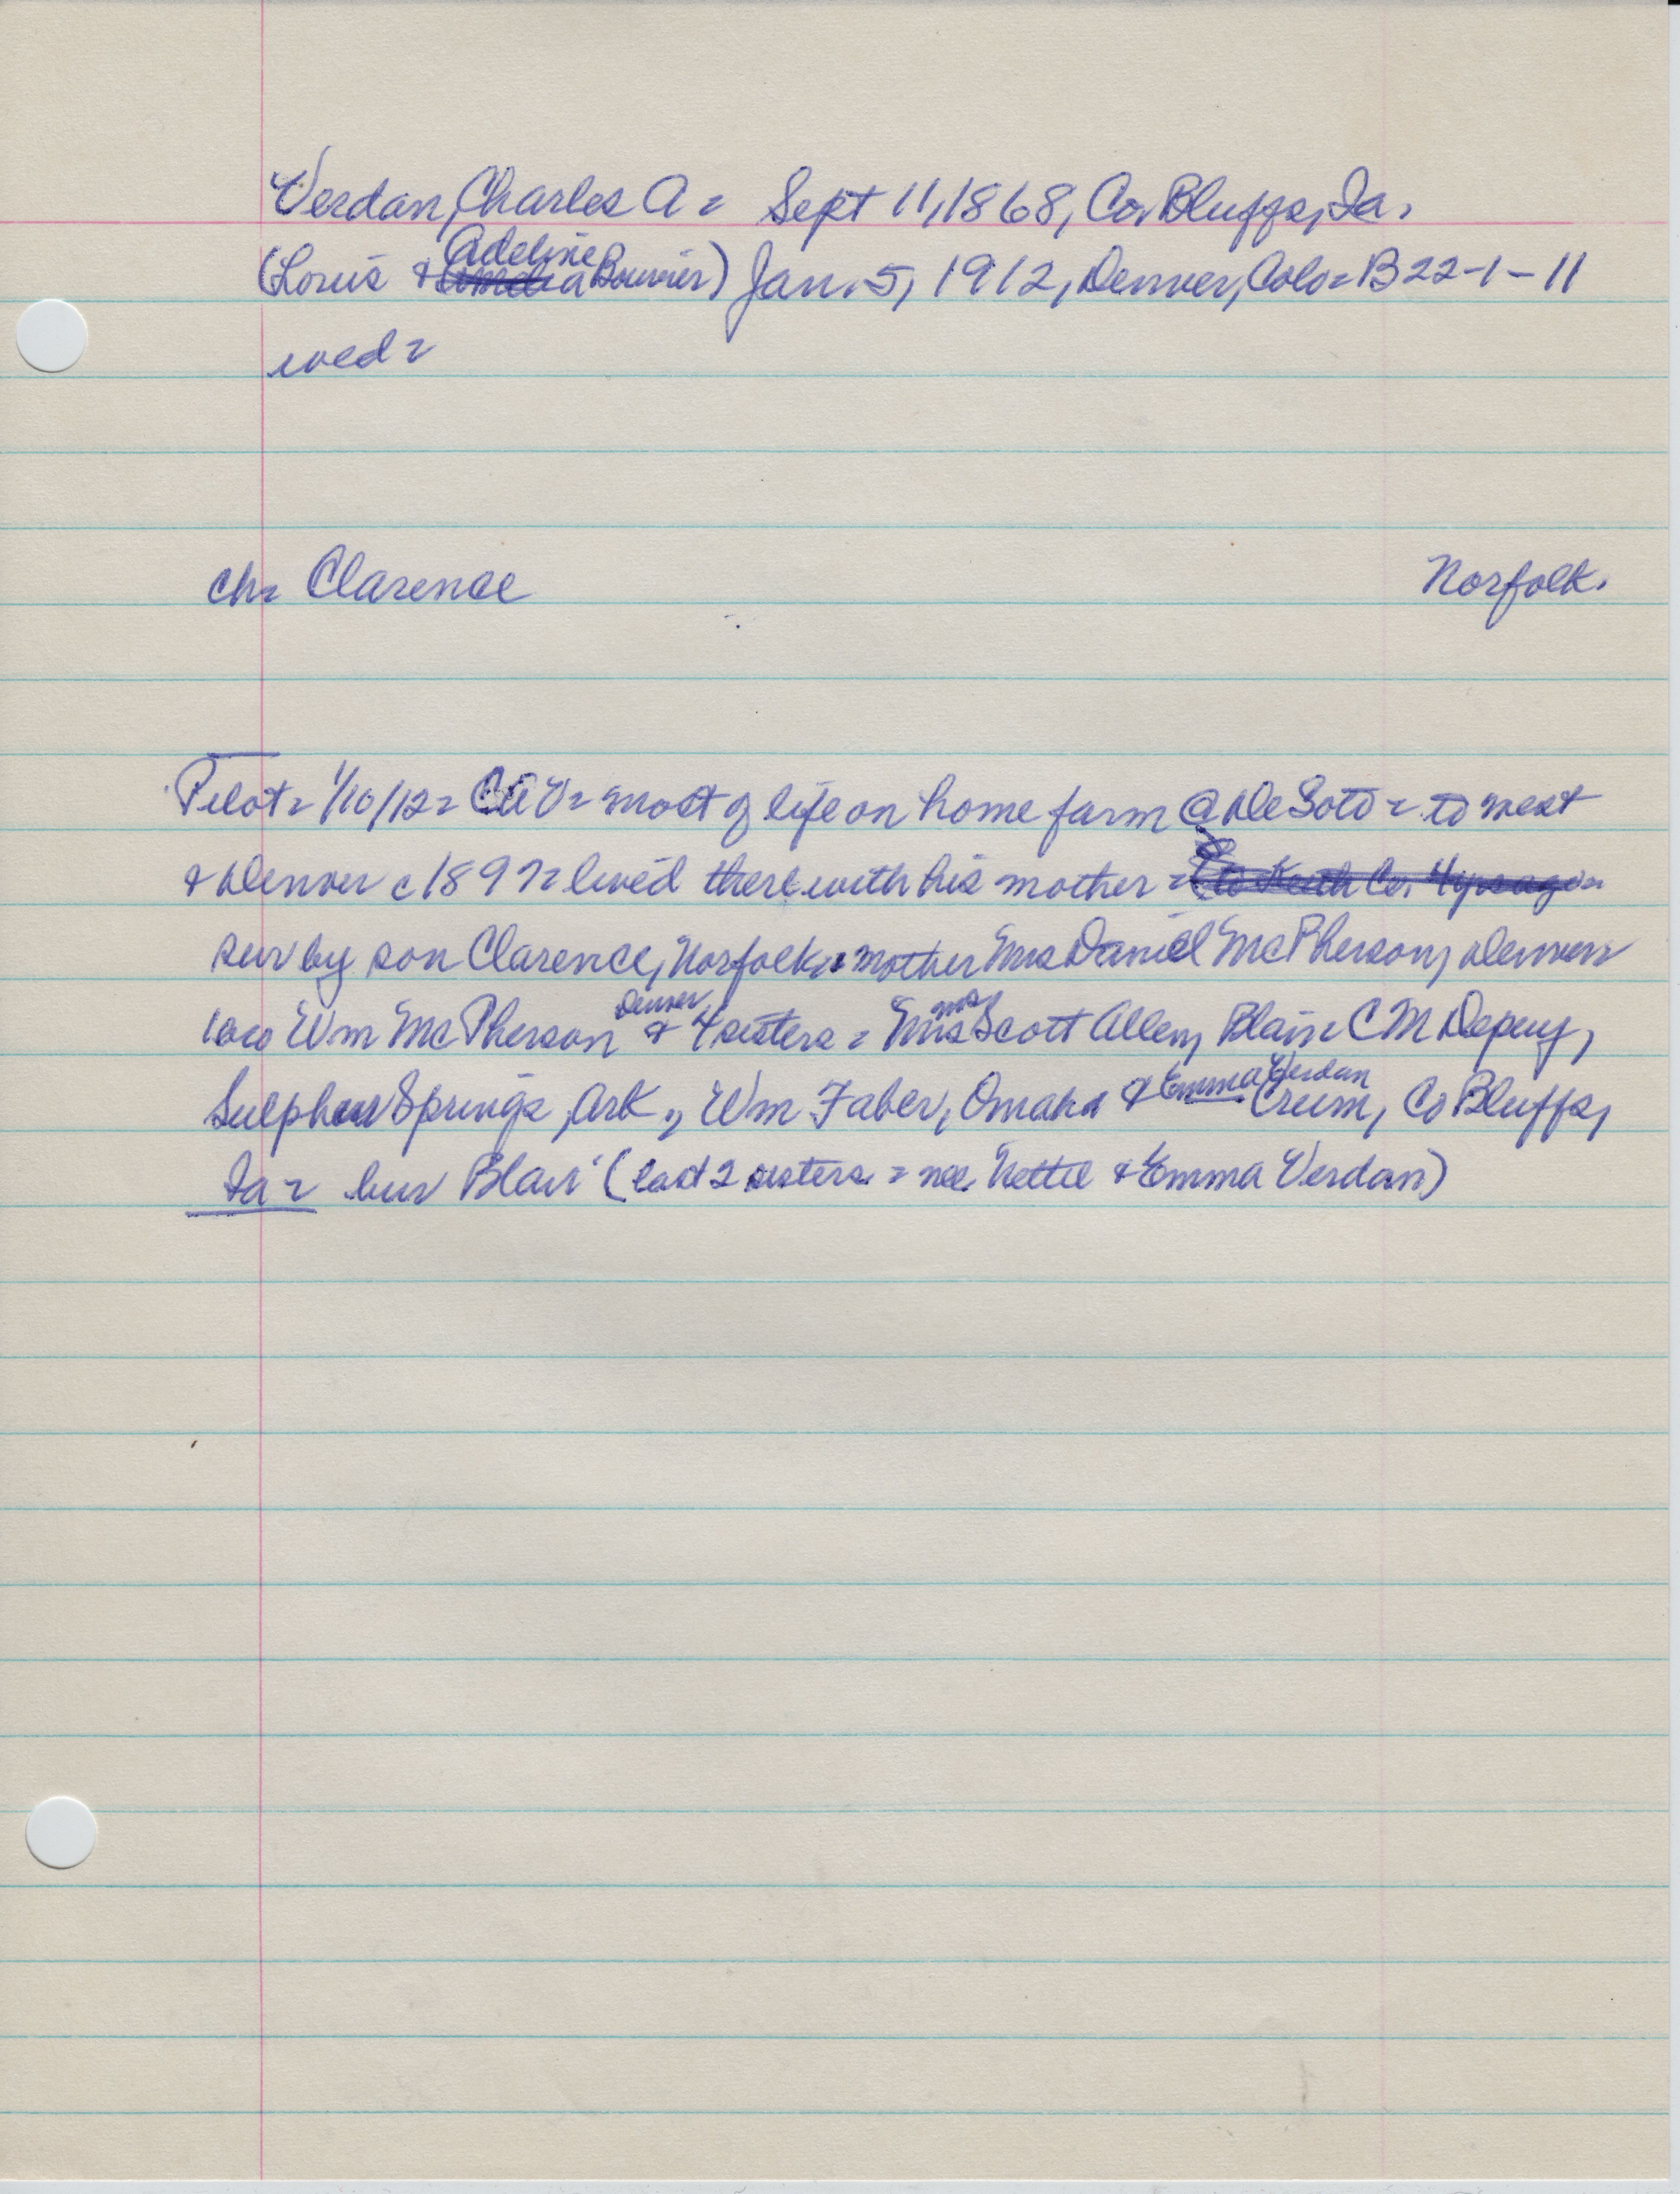 Verdan, Charles A = Sept 11, 1868, Co. Bluffs, Ia.
Adeline
(Louis & Bouvier) Jan. 5, 1912, Denver, Colo = B 22-1-11
wed =
ch = Clarence Norfolk.
Pilot = 1/10/12 = CAV = most of life on home farm @ DeSoto = to west
& Denver c 1897 = lived there with his mother = (to Keith Co. 4 yrs ago =
sur by son Clarence, Norfolk = mother Mrs Daniel McPherson, Denver =
Denver, Mrs
Wm McPherson & 4 sisters = Mrs Scott Allen, Blair = C M Depuy,
Emma Verdan
Sulphur Springs, Ark., Wm Faber, Omaha & Crum, Co Bluffs,
Ia = bur Blair (last 2 sisters = nee Nettie & Emma Verdan)